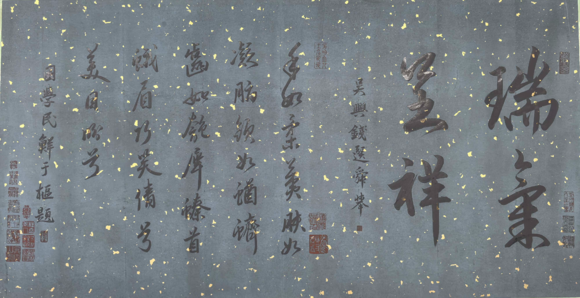 瑞氣
呈祥
吳興錢選舜舉
手如柔荑膚如
凝脂領如蝤蠐
齒如瓠犀螓首
蛾眉巧笑倩兮
美目盼兮
困學民鮮于樞題